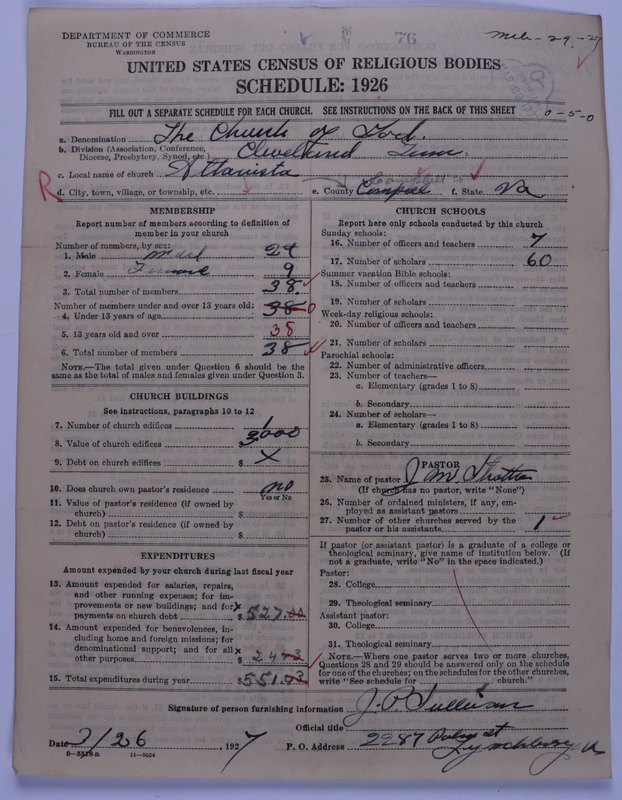 DEPARTMENT OF COMMERCE
BUREAU OF THE CENSUS
WASHINGTON
76
UNITED STATES CENSUS OF RELIGIOUS BODIES
SCHEDULE: 1926
FILL OUT A SEPARATE SCHEDULE FOR EACH CHURCH. SEE INSTRUCTIONS ON THE BACK OF THIS SHEET
0-5-0
a. Denomination The Church of God.
b. Division (Association, Conference, Diocese, Presbytery, Synod, etc.) Cleveland Tenn.
c. Local name of church Altavista
R d. City, town, village, or township, etc. e. County f. State Va
MEMBERSHIP
Report number of members according to definition of member in your church
Number of members, by sex:
1. Male 29
2. Female 9
3. Total number of members 38
Number of members under and over 13 years old:
4. Under 13 years of age 38 0
5. 13 years old and over 38
6. Total number of members 38
NOTE.—The total given under Question 6 should be the same as the total of males and females given under Question 3.
CHURCH BUILDINGS
See instructions, paragraphs 10 to 12
7. Number of church edifices 1
8. Value of church edifices 3000
9. Debt on church edifices $ X
10. Does church own pastor's residence no
Yes or No
11. Value of pastor's residence (if owned by church) $
12. Debt on pastor's residence (if owned by church) $
EXPENDITURES
Amount expended by your church during last fiscal year
13. Amount expended for salaries, repairs, and other running expenses; for improvements or new buildings; and for payments on church debt $527.00
14. Amount expended for benevolences, including home and foreign missions; for denominational support; and for all other purposes $24
15. Total expenditures during year $551.
CHURCH SCHOOLS
Report here only schools conducted by this church
Sunday schools:
16. Number of officers and teachers 7
17. Number of scholars 60
Summer vacation Bible schools:
18. Number of officers and teachers
19. Number of scholars
Week-day religious schools:
20. Number of officers and teachers
21. Number of scholars
Parochial schools:
22. Number of administrative officers
23. Number of teachers—
a. Elementary (grades 1 to 8)
b. Secondary
24. Number of scholars—
a. Elementary (grades 1 to 8)
b. Secondary
PASTOR
25. Name of pastor J M
(If church has no pastor, write "None")
26. Number of ordained ministers, if any, employed as assistant pastors
27. Number of other churches served by the pastor or his assistants 1
If pastor (or assistant pastor) is a graduate of a college or theological seminary, give name of institution below. (If not a graduate, write "No" in the space indicated.)
Pastor:
28. College
29. Theological seminary
Assistant pastor:
30. College
31. Theological seminary
NOTE.—Where one pastor serves two or more churches, Questions 28 and 29 should be answered only on the schedule for one of the churches; on the schedules for the other churches, write "See schedule for church."
Signature of person furnishing information J. P. Sullivan
Official title
Date 2/26, 1927 P. O. Address 2287
Lynchburg Va
8-5518a 11-9054